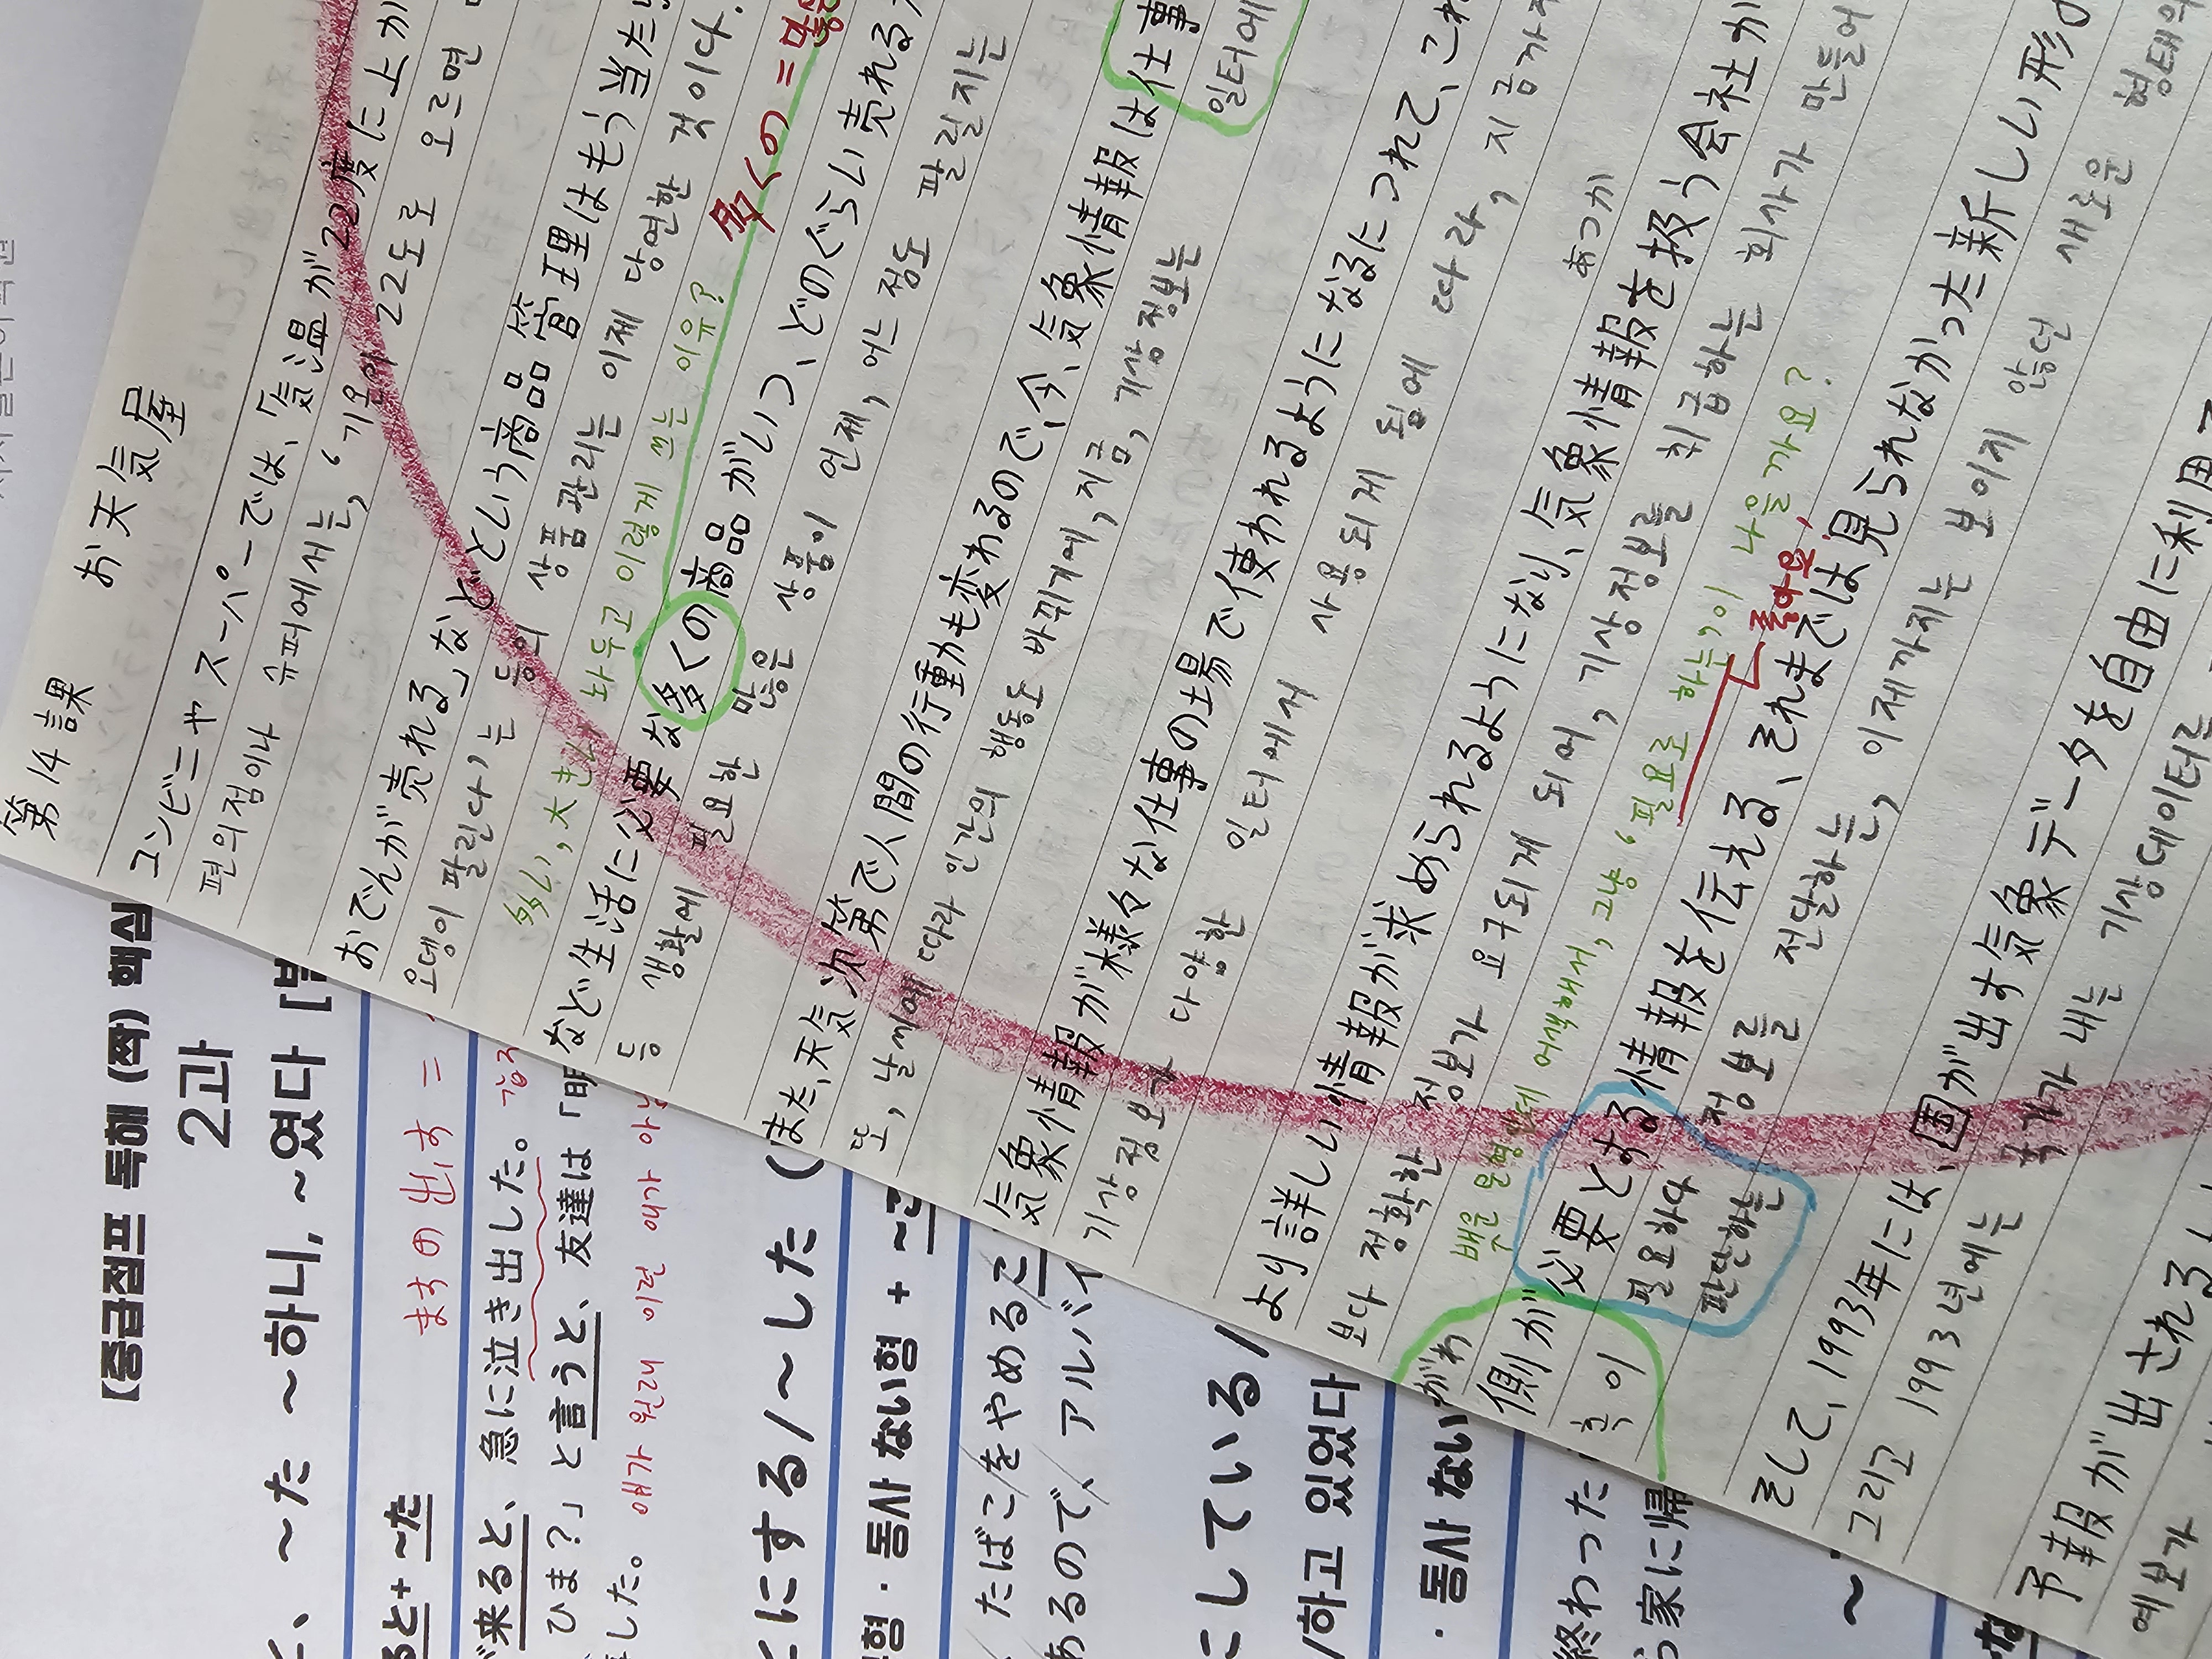 第14課 お天気屋
コンビニやスーパーでは、「気温が22度に上が
편의점이나 슈퍼에서는, '기온이 22도로 오르면
おでんが売れる」などという商品管理はもう当たり
오뎅이 팔린다'는 등의 상품관리는 이제 당연한 것이다.
多い, 大きい 놔두고 이렇게 쓰는 이유?
多くの =
など生活に必要な多くの商品がいつ、どのぐらい売れる
등 생활에 필요한 많은 상품이 언제, 어느 정도 팔릴지는
また、天気次第で人間の行動も変わるので、今、気象情報は仕事
또, 날씨에 따라 인간의 행동도 바뀌기에, 지금, 기상정보는 일터에
気象情報が様々な仕事の場で使われるようになるにつれて、これ
기상정보가 다양한 일터에서 사용되게 됨에 따라, 지금까지
より詳しい情報が求められるようになり、気象情報を扱う会社が
あつか
보다 정확한 정보가 요구되게 되어, 기상정보를 취급하는 회사가 만들어
배운 어색해서, 그냥 '필요로 하는'이 나을까요?
좋아요!
がわ
側が必要とする情報を伝える、それまでは見られなかった新しい形の
측이 필요하다 정보를 전달하는, 이제까지는 보이지 않던 새로운 형태의
판단하는
そして、1993年には、国が出す気象データを自由に利用
그리고 1993년에는 국가가 내는 기상데이터를
予報が出される
예보가
[중급점프 독해 (쪽) 핵심
2과
、~た ~하니, ~였다 [발
ると+ ~た
ますの出す =
来ると、急に泣き出した。
ひま?」と言うと、友達は「明
した。 얘가 원래 이런 애가 아닌
にする/~した (
형·동사 ない형 + ~こ
たばこをやめるこ
あるので、アルバイ
こしている/
/하고 있었다
·동사 ない
終わった
ら家に帰